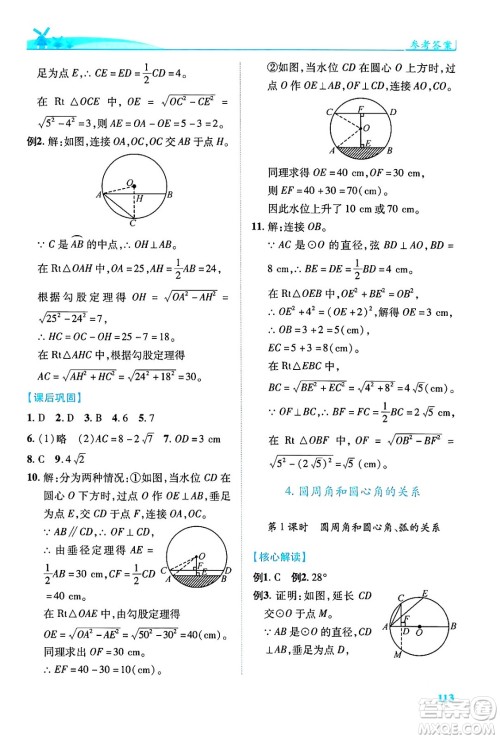 参考答案
足为点 E,∴ CE=ED=1/2 CD=4。
在 Rt△OCE 中,OE=√(OC²−CE²)=
√(5²−4²)=3,所以 AE=OA−OE=5−3=2。
例2. 解:如图,连接 OA,OC,OC 交 AB 于点 H。
O
A
H
B
C
∵ C 是 AB 的中点,∴ OH⊥AB。
在 Rt△OAH 中,OA=25,AH=1/2 AB=24,
根据勾股定理得 OH=√(OA²−AH²)=
√(25²−24²)=7(cm)。
∴ HC=OC−OH=25−7=18(cm)。
在 Rt△AHC 中,根据勾股定理得
AC=√(AH²+HC²)=√(24²+18²)=30(cm)。
【课后巩固】
1. D 2. D 3. B 4. 6 5. 7
6. (1)略 (2)AC=8−2√7 7. D
8. C 9. 4√2
10. 解:分为两种情况:①如图,当水位在
圆心 O 下方时,过点 O 作 OF⊥CD,
交 AB 于点 E,连接 AO,CO。
∵ AB∥CD,∴ OF⊥AB。
∴ 由垂径定理得
AE=1/2 AB=1/2×60
=30(cm),CF=1/2
CD=1/2×80
=40(cm)。
O
C
D
A
E
B
在 Rt△OAE 中,由勾股定理得
OE=√(OA²−AE²)=√(50²−30²)=40(cm)。
同理求出 OF=30 cm,
∴ EF=40−30=10(cm)。
②如图,当水位在圆心 O 上方时,过点
O 作 OE⊥AB,连接 AO,CO。
C
F
D
O
A
E
B
同理求得 OE=40 cm,OF=30 cm,
则 EF=40+30=70(cm)。
因此水位上升了 10 cm 或 70 cm。
11. 解:连接 OB。
∵ AC 是⊙O 的直径,弦 BD⊥AO,BD=
8 cm,∴ BE=DE=1/2 BD=4 cm。
在 Rt△OEB 中,OE²+BE²=OB²,
∴ OE²+4²=(OE+2)²,解得 OE=3。
∴ OB=3+2=5(cm)。
∴ EC=5+3=8(cm)。
在 Rt△EBC 中,
BC=√(BE²+EC²)=√(4²+8²)=4√5(cm)。
∵ OF⊥BC,∴ BF=1/2 BC=2√5 cm。
在 Rt△OBF 中,OF=√(OB²−BF²)=
√(5²−(2√5)²)=√5(cm)。
4. 圆周角和圆心角的关系
第 1 课时 圆周角和圆心角、弧的关系
【核心解读】
例1. C 例2. 28°
例3. 证明:如图,延长 CD
交⊙O 于点 M。
∵ AB 是⊙O 的直径,
CD⊥AB,
C
E
F
A
D
O
B
M
113